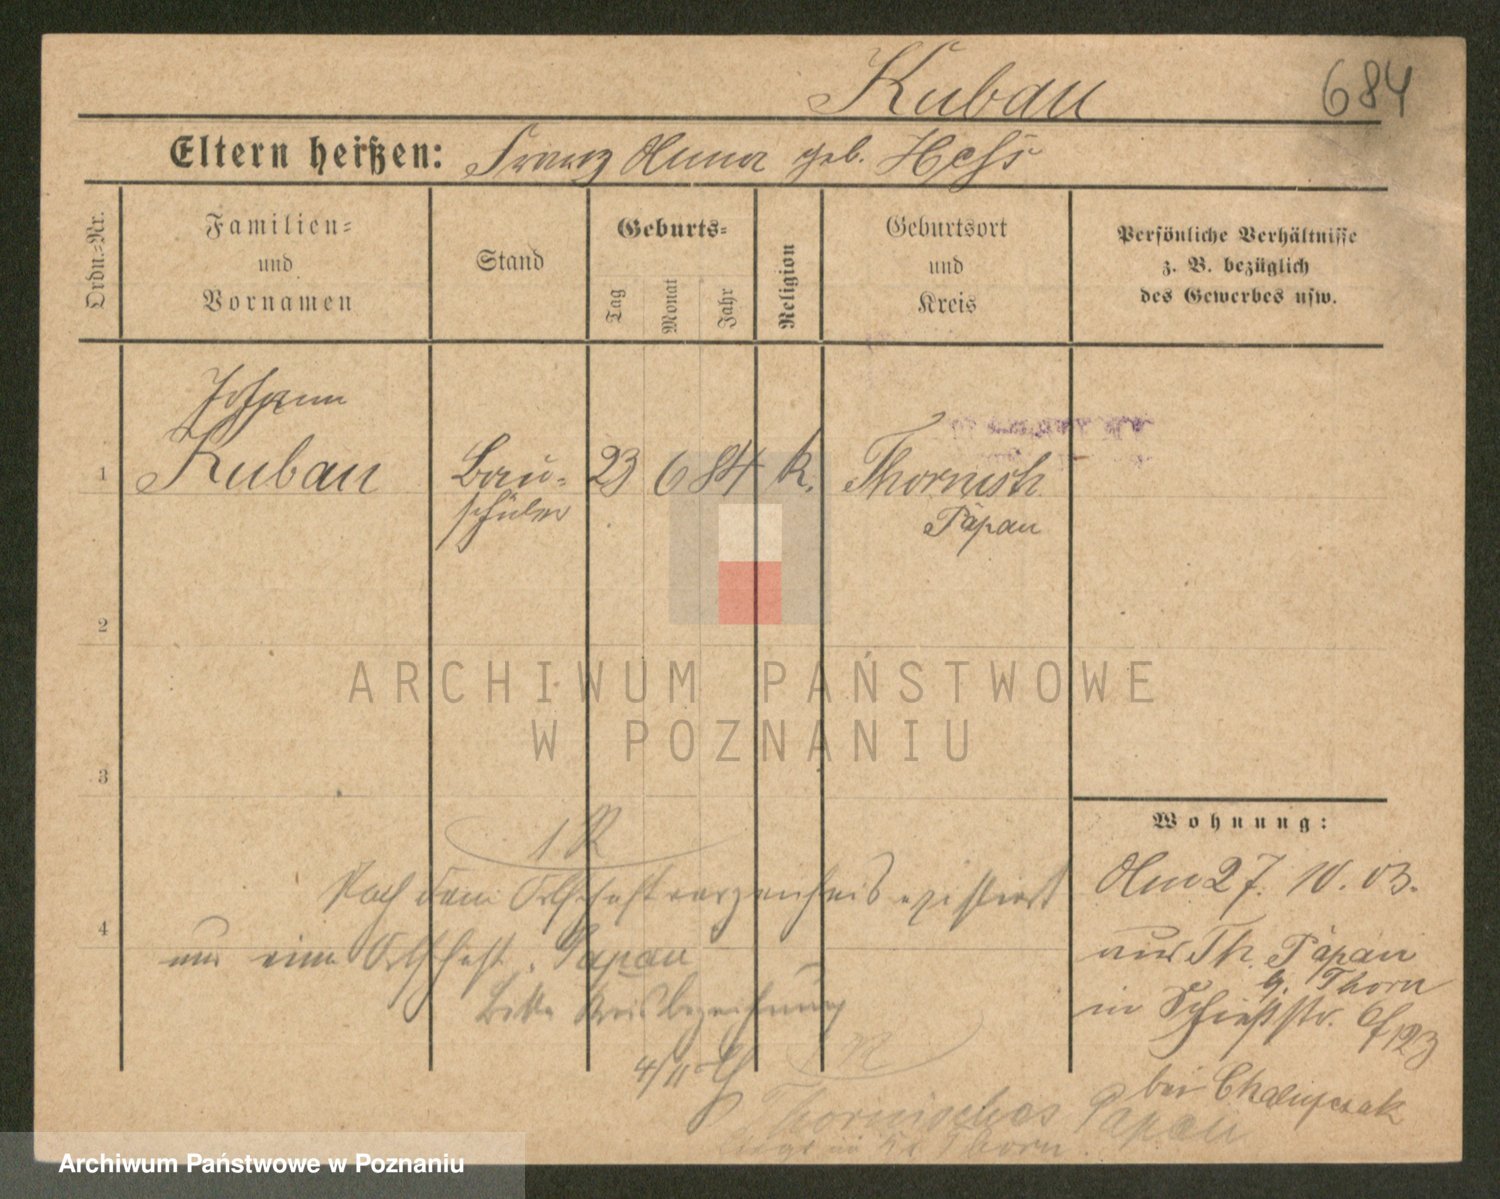 Kubau
684
Eltern heißen: Franz Anna geb. Hess
Ordn.=Nr.
Familien=
und
Vornamen
Stand
Geburts=
Tag
Monat
Jahr
Religion
Geburtsort
und
Kreis
Persönliche Verhältnisse
z. B. bezüglich
des Gewerbes usw.
Johann
1 Kubau Bau= 23 6 84 k. Thornisch
schüler Papau
2
3
4
1 R
Nach dem Ortschaftsverzeichnis existiert
nur eine Ortschaft Papau
Bitte Kreisbezeichnung
4/11
Wohnung:
Am 27. 10. 03.
aus Th. Papau
b. Thorn
in Schießstr.
bei
Thornisches Papau
liegt im Kr Thorn.
ARCHIWUM PAŃSTWOWE
W POZNANIU
Archiwum Państwowe w Poznaniu